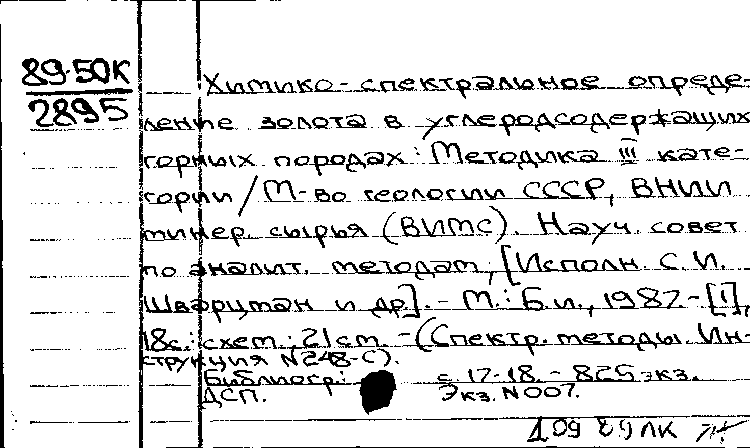 89-50К
2895
Химико-спектральное опреде-
ление золота в углеродсодержащих
горных породах: Методика III кате-
гории / М-во геологии СССР, ВНИИ
минер. сырья (ВИМС). Науч. совет
по аналит. методам; [Исполн. С. И.
Шварцман и др.]. - М.: Б.и., 1987. - [1],
18с.: схем.; 21см. - (Спектр. методы. Ин-
струкция N248-С).
Библиогр.: с. 17-18. - 825 экз.
ДСП. Экз. N007.
109 89 ЛК